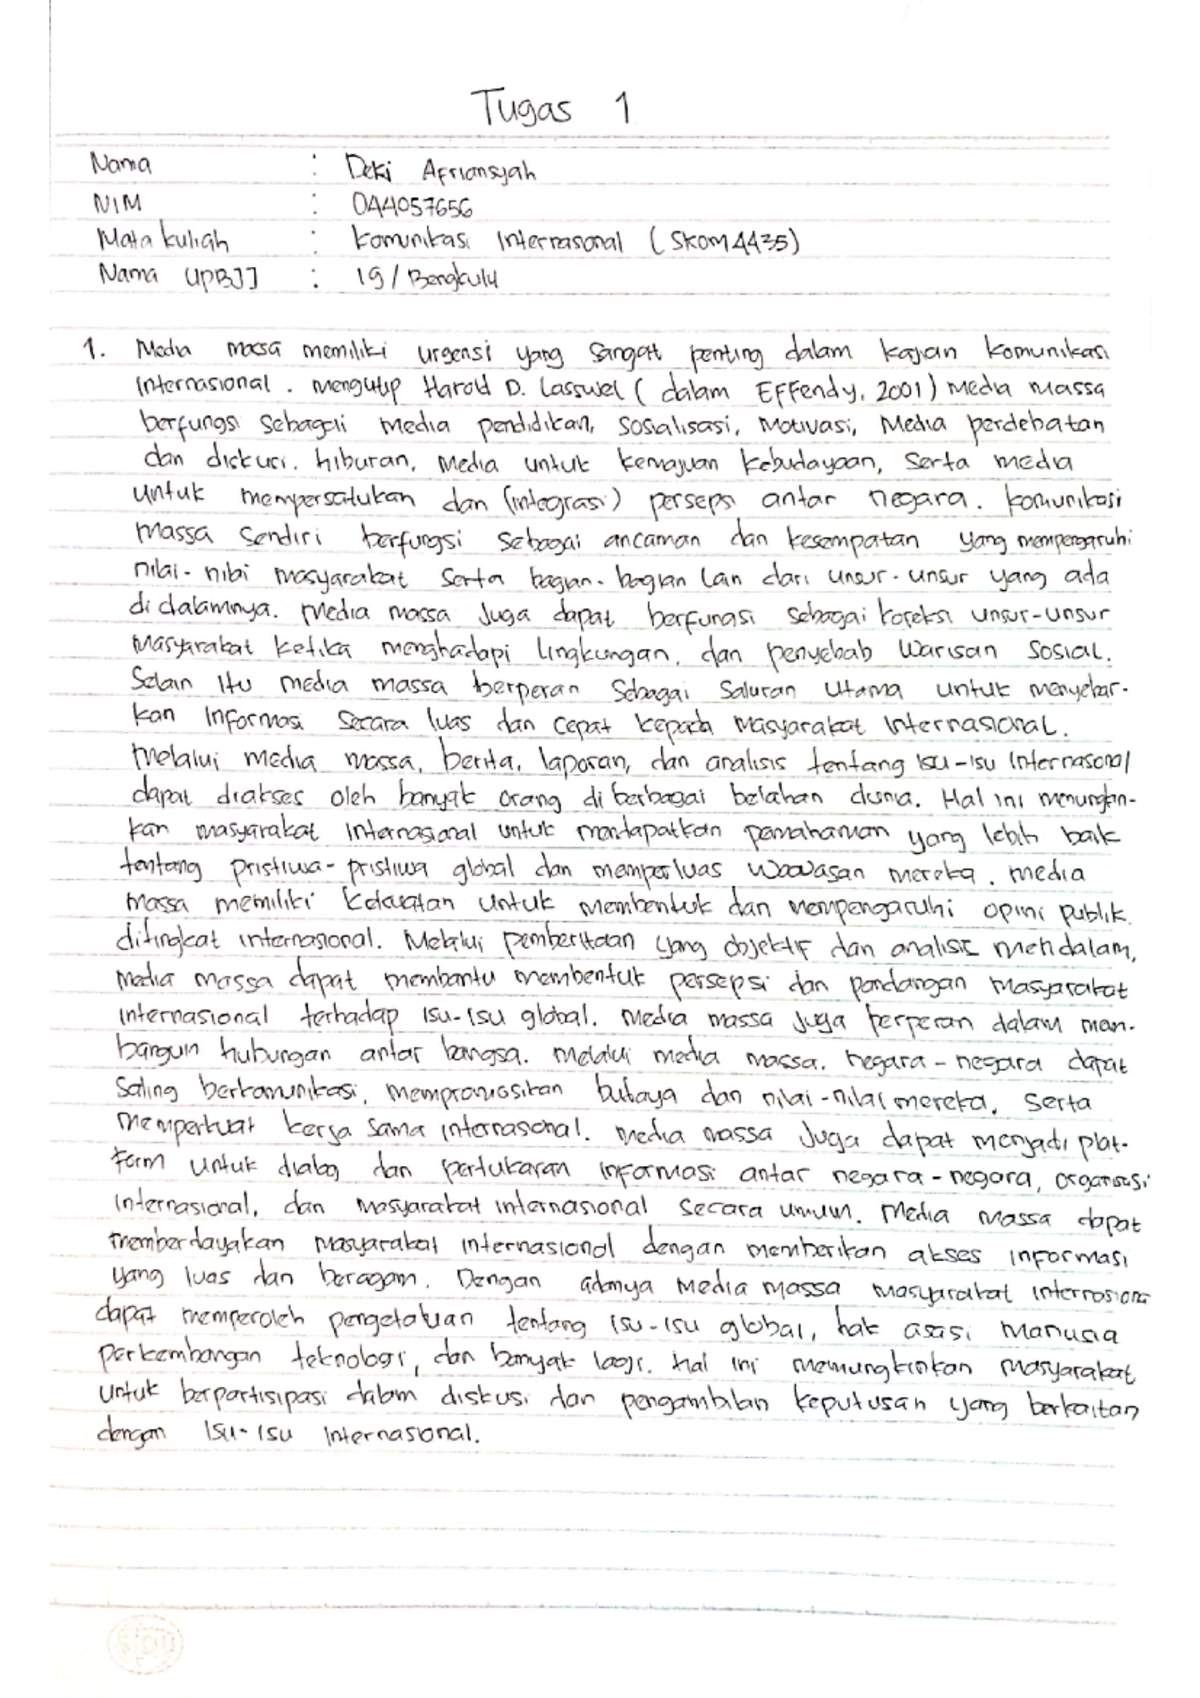 Tugas 1
Nama : Deki Afriansyah
NIM : 044057656
Mata kuliah : Komunikasi Internasional (SKOM4435)
Nama UPBJJ : 19/Bengkulu
1. Media massa memiliki urgensi yang sangat penting dalam kajian komunikasi
Internasional. mengutip Harold D. Lasswel (dalam Effendy, 2001) media massa
berfungsi sebagai media pendidikan, sosialisasi, Motivasi, Media perdebatan
dan diskusi, hiburan, media untuk kemajuan kebudayaan, serta media
untuk mempersatukan dan (integrasi) persepsi antar negara. komunikasi
massa sendiri berfungsi sebagai ancaman dan kesempatan yang mempengaruhi
nilai-nilai masyarakat serta bagian-bagian lain dari unsur-unsur yang ada
didalamnya. media massa juga dapat berfungsi sebagai koreksi unsur-unsur
masyarakat ketika menghadapi lingkungan, dan penyebab warisan sosial.
Selain itu media massa berperan sebagai saluran utama untuk menyebar-
kan informasi secara luas dan cepat kepada masyarakat internasional.
melalui media massa, berita, laporan, dan analisis tentang isu-isu internasional
dapat diakses oleh banyak orang di berbagai belahan dunia. Hal ini memungkin-
kan masyarakat internasional untuk mendapatkan pemahaman yang lebih baik
tentang pristiwa-pristiwa global dan memperluas wawasan mereka. media
massa memiliki kekuatan untuk membentuk dan mempengaruhi opini publik
ditingkat internasional. Melalui pemberitaan yang objektif dan analisis mendalam,
media massa dapat membantu membentuk persepsi dan pandangan masyarakat
internasional terhadap isu-isu global. media massa juga berperan dalam mem-
bangun hubungan antar bangsa. melalui media massa, negara-negara dapat
saling berkomunikasi, mempromosikan budaya dan nilai-nilai mereka, serta
memperkuat kerja sama internasional. media massa juga dapat menjadi plat-
form untuk dialog dan pertukaran informasi antar negara-negara, organisasi
internasional, dan masyarakat internasional secara umum. Media massa dapat
memberdayakan masyarakat internasional dengan memberikan akses informasi
yang luas dan beragam. Dengan adanya media massa masyarakat internasiona
dapat memperoleh pengetahuan tentang isu-isu global, hak asasi manusia
perkembangan teknologi, dan banyak lagi. Hal ini memungkinkan masyarakat
untuk berpartisipasi dalam diskusi dan pengambilan keputusan yang berkaitan
dengan isu-isu internasional.
SIDU